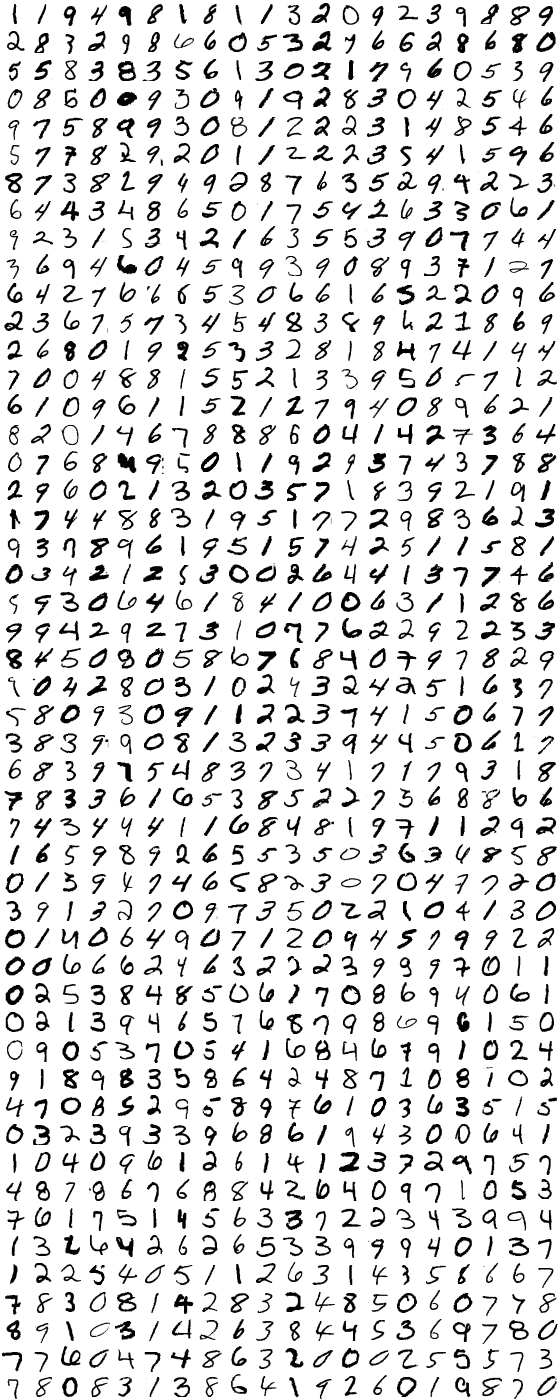 1 1 9 4 9 8 1 8 1 1 3 2 0 9 2 3 9 8 8 9
2 8 3 2 9 8 6 6 0 5 3 2 7 6 6 2 8 6 8 0
5 5 8 3 8 3 5 6 1 3 0 2 1 7 9 6 0 5 3 9
0 8 6 0 0 9 3 0 9 1 9 2 8 3 0 4 2 5 4 6
9 7 5 8 9 9 3 0 8 1 2 2 2 3 1 4 8 5 4 6
5 7 7 8 2 9 2 0 1 1 2 2 2 3 5 4 1 5 9 6
8 7 3 8 2 9 4 9 2 8 7 6 3 5 2 9 4 2 2 3
6 4 4 3 4 8 6 5 0 1 7 5 4 2 6 3 3 0 6 1
9 2 3 1 5 3 4 2 1 6 3 5 5 3 9 0 7 7 4 4
3 6 9 4 6 0 4 5 9 9 3 9 0 8 9 3 7 1 2 7
6 4 2 7 6 6 6 5 3 0 6 6 1 6 5 2 2 0 9 6
2 3 6 7 5 7 3 4 5 4 8 3 8 9 6 2 1 8 6 9
2 6 8 0 1 9 2 5 3 3 2 8 1 8 4 7 4 1 4 4
7 0 0 4 8 8 1 5 5 2 1 3 3 9 5 0 5 7 1 2
6 1 0 9 6 1 1 5 2 1 2 7 9 4 0 8 9 6 2 1
8 2 0 1 4 6 7 8 8 8 6 0 4 1 4 2 7 3 6 4
0 7 6 8 4 9 5 0 1 1 9 2 9 3 7 4 3 7 8 8
2 9 6 0 2 1 3 2 0 3 5 7 1 8 3 9 2 1 9 1
1 7 4 4 8 8 3 1 9 5 1 7 7 2 9 8 3 6 2 3
9 3 7 8 9 6 1 9 5 1 5 7 4 2 5 1 1 5 8 1
0 3 4 2 1 2 5 3 0 0 2 6 4 4 1 3 7 7 4 6
5 9 3 0 6 4 6 1 8 4 1 0 0 6 3 1 1 2 8 6
9 9 4 2 9 2 7 3 1 0 7 7 6 2 2 9 2 2 3 3
8 4 5 0 8 0 5 8 6 7 6 8 4 0 7 9 7 8 2 9
9 0 4 2 8 0 3 1 0 2 4 3 2 4 2 5 1 6 3 7
5 8 0 9 3 0 9 1 1 2 2 3 7 4 1 5 0 6 7 7
3 8 3 9 9 0 8 1 3 2 3 3 9 4 4 5 0 6 1 7
6 8 3 9 7 5 4 8 3 7 3 4 1 7 1 7 9 3 1 8
7 8 3 3 6 1 6 5 3 8 5 2 2 7 3 6 8 8 6 6
7 4 3 4 4 4 1 1 6 8 4 8 1 9 7 1 1 2 9 2
1 6 5 9 8 9 2 6 5 5 3 5 0 3 6 3 4 8 5 8
0 1 3 9 4 7 4 6 5 8 2 3 0 7 0 4 7 7 2 0
3 9 1 3 2 7 0 9 7 3 5 0 2 2 1 0 4 1 3 0
0 1 4 0 6 4 9 0 7 1 2 0 9 4 5 7 9 9 2 2
0 0 6 6 6 2 4 6 3 2 2 2 3 9 3 9 7 0 1 1
0 2 5 3 8 4 8 5 0 6 1 7 0 8 6 9 4 0 6 1
0 2 1 3 9 4 6 5 7 6 8 7 9 8 6 9 6 1 5 0
0 9 0 5 3 7 0 5 4 1 6 8 4 6 7 9 1 0 2 4
9 1 8 9 8 3 5 8 6 4 2 4 8 7 1 0 8 1 0 2
4 7 0 8 5 2 9 5 8 9 7 6 1 0 3 6 3 5 1 5
0 3 2 3 9 3 3 9 6 8 6 1 9 4 3 0 0 6 4 1
1 0 4 0 9 6 1 2 6 1 4 1 2 3 7 2 9 7 5 7
4 8 7 8 6 7 6 8 8 4 2 6 4 0 9 7 1 0 5 3
7 6 1 7 5 1 4 5 6 3 3 7 2 2 3 4 3 9 9 4
1 3 2 6 4 2 6 2 6 5 3 3 9 9 9 4 0 1 3 7
1 2 2 5 4 0 5 1 1 2 6 3 1 4 3 5 8 6 6 7
7 8 3 0 8 1 4 2 8 3 2 4 8 5 0 6 0 7 7 8
8 9 1 0 3 1 4 2 6 3 8 4 4 5 3 6 9 7 8 0
7 7 6 0 4 7 4 8 6 3 2 0 0 0 2 5 5 5 7 3
7 8 0 8 3 1 3 8 6 4 1 9 2 6 0 1 9 8 7 0